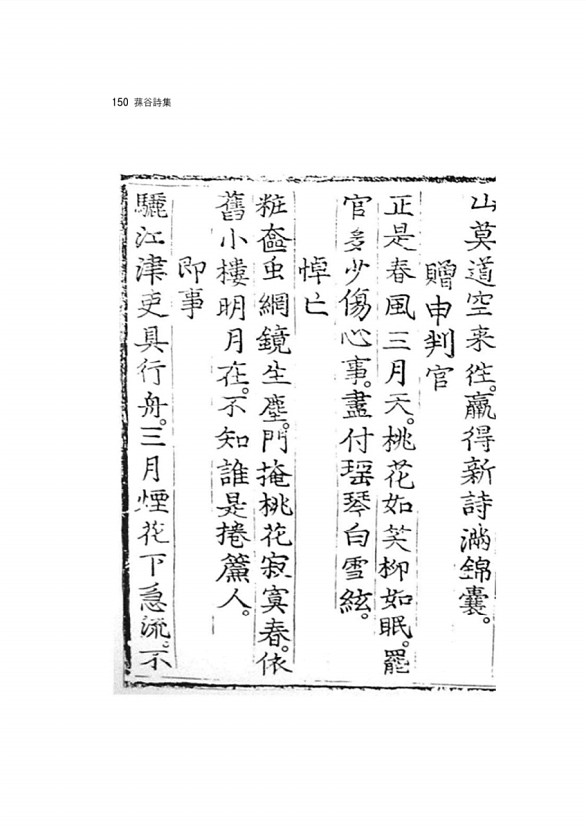 150 蓀谷詩集
山莫道空来往。羸得新詩滿錦囊。
贈申判官
正是春風三月天。桃花如笑柳如眠。罷
官多少傷心事。盡付瑶琴白雪絃。
悼亡
粧奩虫網鏡生塵。門掩桃花寂寞春。依
舊小樓明月在。不知誰是捲簾人。
即事
驪江津吏具行舟。三月煙花下急流。不